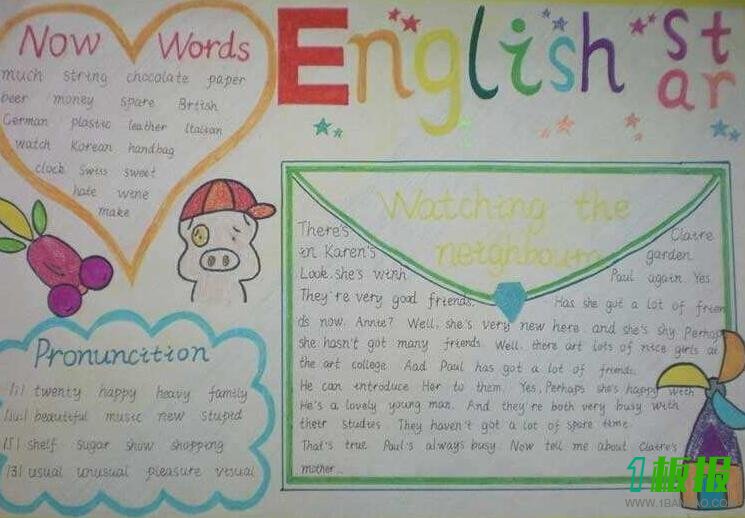 Now Words
much string chocolate paper
beer money spare Brtish
German plastic leather Italian
watch Korean handbag
clock Swiss sweet
hate wine
make
English star
Watching the
neighbours
There's Claire
in Karen's garden
Look, she's with Paul again. Yes
They're very good friends. Has she got a lot of frien
ds now, Annie? Well, she's very new here, and she's shy Perhap
she hasn't got many friends. Well, there art lots of nice girls at
the art college. Aad Paul has got a lot of friends.
He can introduce Her to them. Yes, Perhaps she's happy with
He's a lovely young man. And they're both very busy with
their studies. They haven't got a lot of spare time.
That's true Paul's always busy. Now tell me about Claire's
mother...
Pronuncition
|i| twenty happy heavy family
|ju:| beautiful music new stupid
|ʃ| shelf sugar show shopping
|ʒ| usual unusual pleasure visual
1板报
WWW.1BANBAO.COM